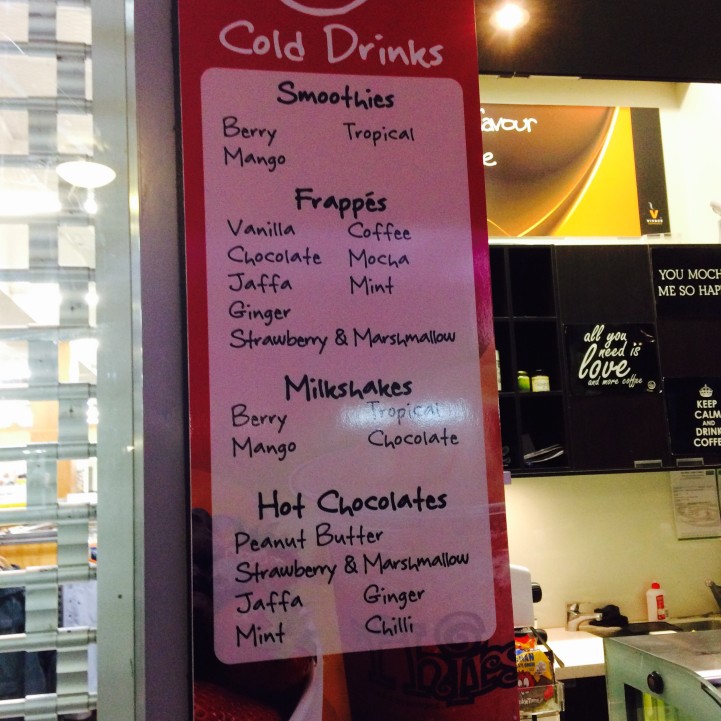 Cold Drinks
Smoothies
Berry Tropical
Mango
Frappés
Vanilla Coffee
Chocolate Mocha
Jaffa Mint
Ginger
Strawberry & Marshmallow
Milkshakes
Berry Tropical
Mango Chocolate
Hot Chocolates
Peanut Butter
Strawberry & Marshmallow
Jaffa Ginger
Mint Chilli
YOU MOCH
ME SO HAP
all you
need is
love
and more coffee
KEEP
CALM
AND
DRINK
COFFE